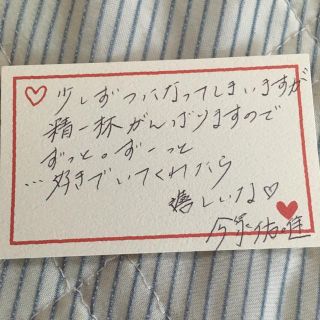 ♡少しずつになってしまいますが
精一杯がんばりますので
ずっと。ずーっと
…好きでいてくれたら
嬉しいな♡
今泉佑唯